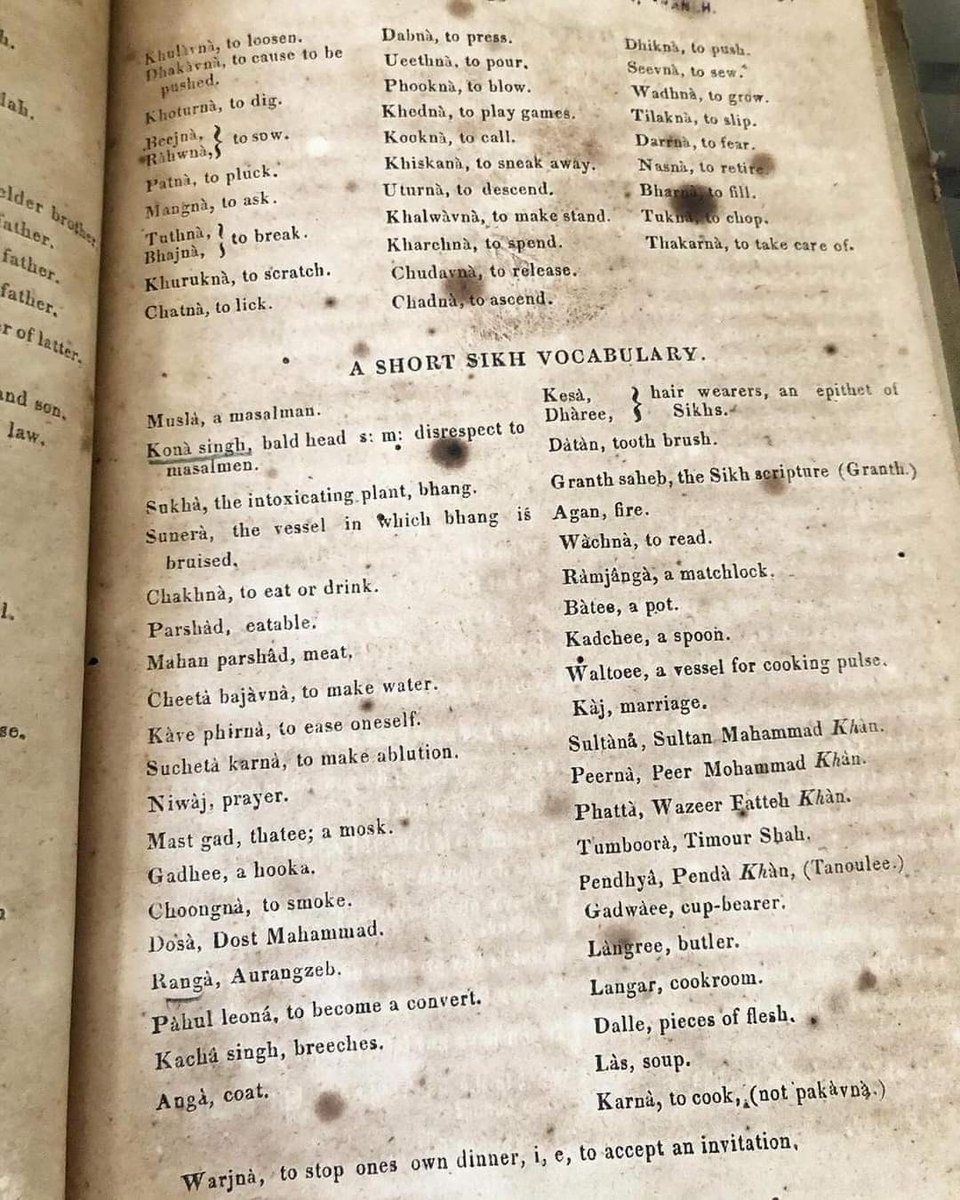 lah.
elder brother
father.
father.
father.
r of latter.
and son.
law.
Khulàvnà, to loosen.
Dhakàvnà, to cause to be
pushed.
Khoturnà, to dig.
Beejnà,
Ràhwnà,
} to sow.
Patnà, to pluck.
Mangnà, to ask.
Tuthnà,
Bhajnà,
} to break.
Khuruknà, to scratch.
Chatnà, to lick.
Dabnà, to press.
Ueethnà, to pour.
Phooknà, to blow.
Khednà, to play games.
Kooknà, to call.
Khiskanà, to sneak away.
Uturnà, to descend.
Khalwàvnà, to make stand.
Kharchnà, to spend.
Chudavnà, to release.
Chadnà, to ascend.
Dhiknà, to push.
Seevnà, to sew.
Wadhnà, to grow.
Tilaknà, to slip.
Darrnà, to fear.
Nasnà, to retire.
Bharnà, to fill.
Tuknà, to chop.
Thakarnà, to take care of.
A SHORT SIKH VOCABULARY.
Muslà, a masalman.
Konà singh, bald head s: m: disrespect to
masalmen.
Sukhà, the intoxicating plant, bhang.
Sunerà, the vessel in which bhang is
bruised.
Chakhnà, to eat or drink.
Parshàd, eatable.
Mahan parshâd, meat.
Cheetà bajàvnà, to make water.
Kàve phirnà, to ease oneself.
Suchetà karnà, to make ablution.
Niwàj, prayer.
Mast gad, thatee; a mosk.
Gadhee, a hooka.
Choongnà, to smoke.
Dosà, Dost Mahammad.
Rangà, Aurangzeb.
Pàhul leoná, to become a convert.
Kachâ singh, breeches.
Angà, coat.
Kesà,
Dhàree,
} hair wearers, an epithet of
Sikhs.
Dàtàn, tooth brush.
Granth saheb, the Sikh scripture (Granth.)
Agan, fire.
Wàchnà, to read.
Ràmjângà, a matchlock.
Bàtee, a pot.
Kadchee, a spoon.
Waltoee, a vessel for cooking pulse.
Kàj, marriage.
Sultànà, Sultan Mahammad Khàn.
Peernà, Peer Mohammad Khàn.
Phattà, Wazeer Fatteh Khàn.
Tumboorà, Timour Shah.
Pendhyâ, Pendà Khàn, (Tanoulee.)
Gadwàee, cup-bearer.
Làngree, butler.
Langar, cookroom.
Dalle, pieces of flesh.
Làs, soup.
Karnà, to cook, (not pakàvnà.)
Warjnà, to stop ones own dinner, i, e, to accept an invitation.